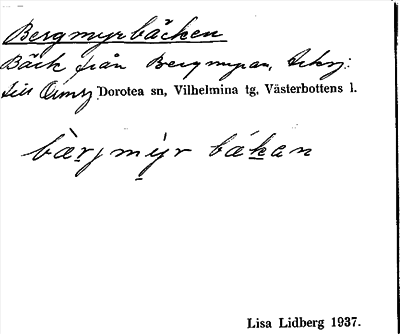 Bergmyrbäcken
Bäck från Bergmyran,
till Dorotea sn, Vilhelmina tg, Västerbottens l.
bàrjmy̱r bák̠an
Lisa Lidberg 1937.